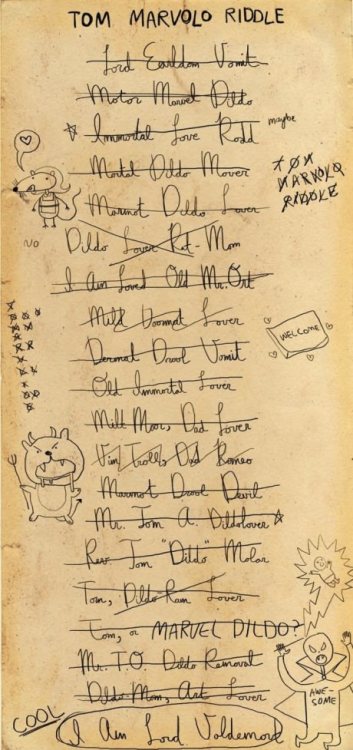 TOM MARVOLO RIDDLE
Lord Earldom Vomit
Motor Marvel Dildo
Immortal Love Rodd
maybe
Mortal Dildo Mover
TOM
MARVOLO
RIDDLE
Marmot Dildo Lover
NO
Dildo Lover Rot-Mom
I Am Loved Old Mr. Ort
Mild Doormat Lover
WELCOME
Dermal Drool Vomit
Old Immortal Lover
Milt Moor, Dad Lover
Vim Troll, Dad Romeo
Marmot Drool Devil
Mr. Tom A. Dildolover
Rev. Tom "Dildo" Molar
Tom, Dildo Ram Lover
Tom, or MARVEL DILDO?
Mr. T.O. Dildo Removal
AWE-
SOME
Dildo Mom, Art Lover
COOL
I Am Lord Voldemord